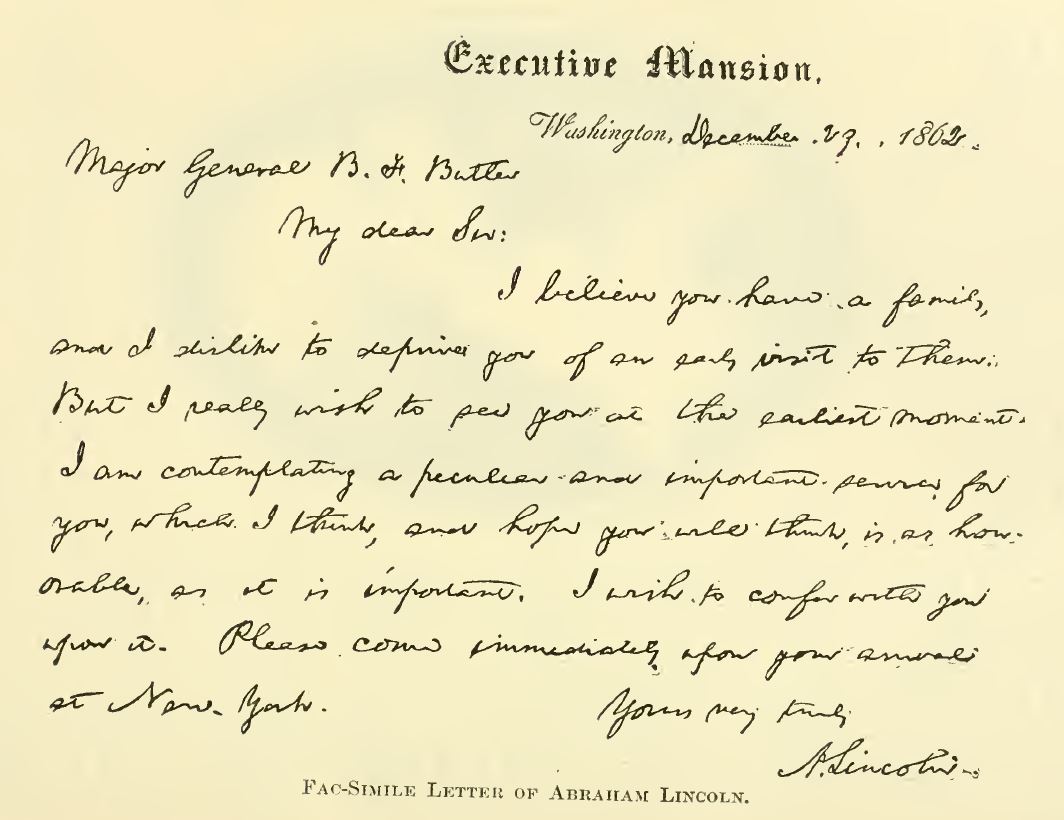 Executive Mansion.
Washington, December 29, 1862.
Major General B. F. Butler
My dear Sir:
I believe you have a family,
and I dislike to deprive you of an early visit to them.
But I really wish to see you at the earliest moment.
I am contemplating a peculiar and important service for
you, which I think, and hope you will think, is as hon-
orable, as it is important. I wish to confer with you
upon it. Please come immediately upon your arrival
at New-York.
Yours very truly
A. Lincoln
FAC-SIMILE LETTER OF ABRAHAM LINCOLN.